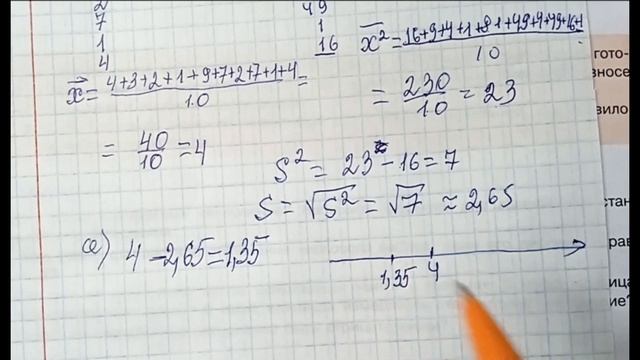 2
7
1
4
49
1
16
x̄ = (4+3+2+1+9+7+2+7+1+4)/10 =
= 40/10 = 4
x̄² = (16+9+4+1+81+49+4+49+1+16)/10
= 230/10 = 23
S² = 23 - 16 = 7
S = √S² = √7 ≈ 2,65
а) 4 - 2,65 = 1,35
1,35 4
гото-
вило